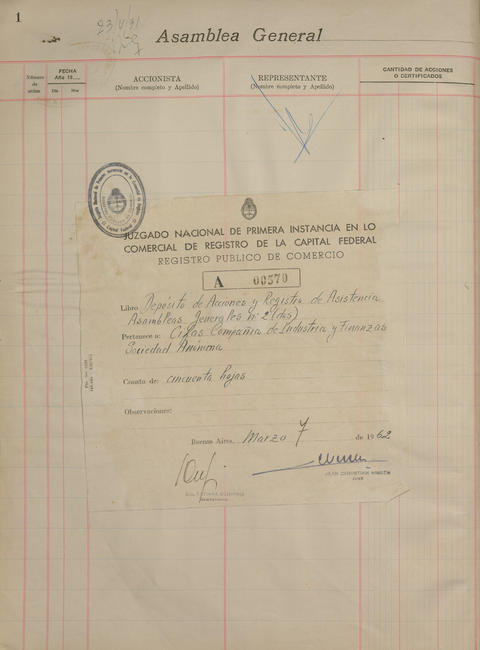 1
23/V/31
Asamblea General
Número
de
orden
FECHA
Año 19.....
Día Mes
ACCIONISTA
(Nombre completo y Apellido)
REPRESENTANTE
(Nombre completo y Apellido)
CANTIDAD DE ACCIONES
O CERTIFICADOS
JUZGADO NACIONAL DE PRIMERA INSTANCIA EN LO
COMERCIAL DE REGISTRO DE LA CAPITAL FEDERAL
REGISTRO PUBLICO DE COMERCIO
A 00570
Libro Depósito de Acciones y Registro de Asistencia
Asambleas Generales nº 2 (dos)
Pertenece a: Cifas Compañia de Industria y Finanzas
Sociedad Anónima
Consta de: cincuenta hojas
Observaciones:
Buenos Aires, Marzo 7 de 1962
JUEZ